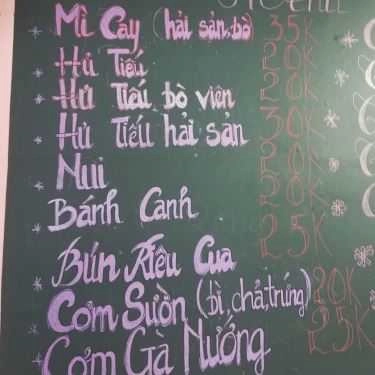 Mì Cay (hải sản, bò) 35K
Hủ Tiếu 20K
Hủ Tiếu bò viên 20K
Hủ Tiếu hải sản 30K
Nui 20K
Bánh Canh 20K
Bún Riêu Cua 25K
Cơm Sườn (bì, chả, trứng) 20K
Cơm Gà Nướng 25K